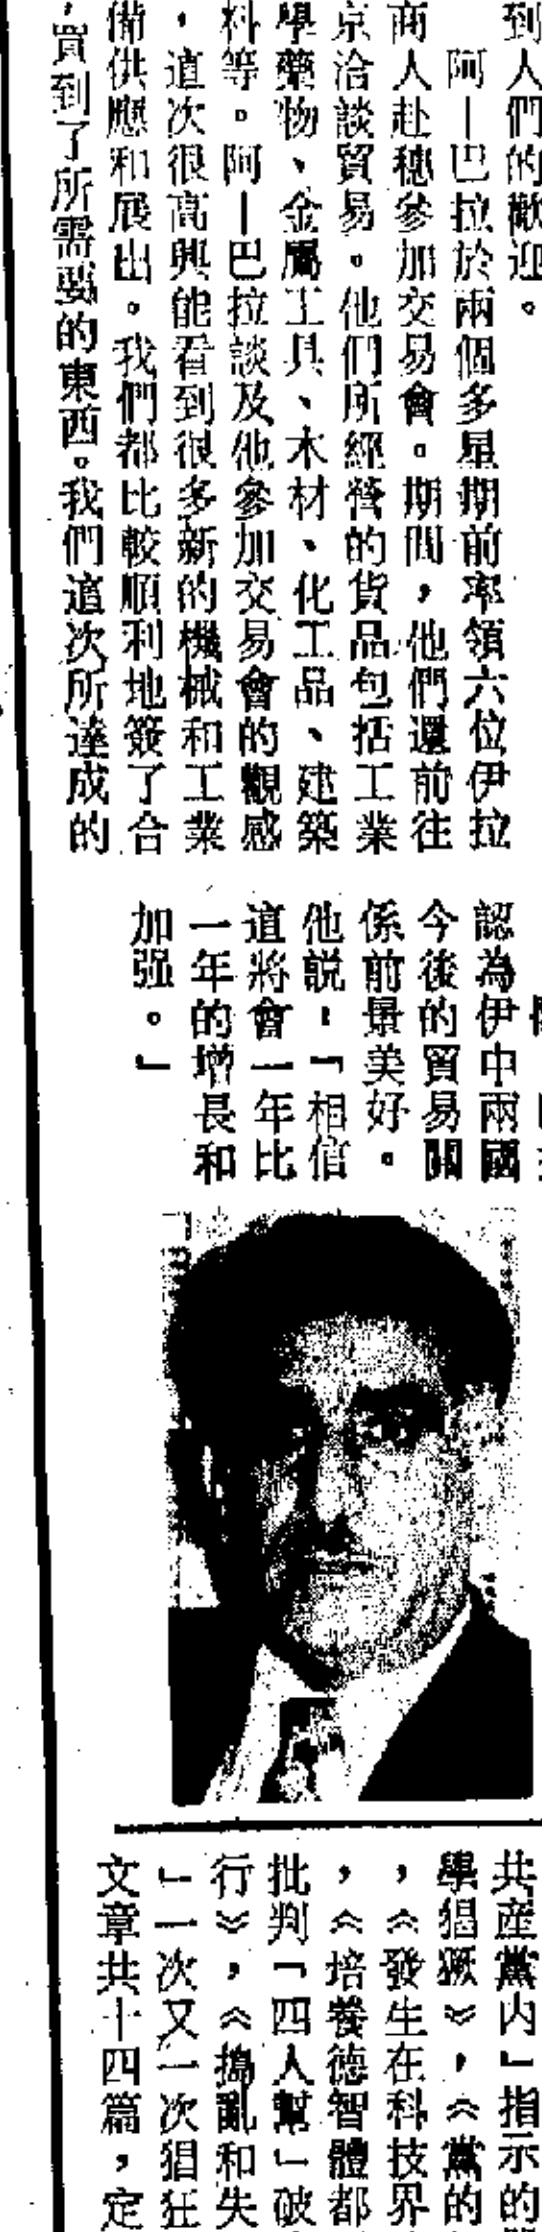 到人們的歡迎。
阿—巴拉於兩個多星期前率領六位伊拉
商人赴穗參加交易會。期間,他們還前往
京洽談貿易。他們所經營的貨品包括工業
學藥物、金屬工具、木材、化工品、建築
料等。阿—巴拉談及他參加交易會的觀感
,這次很高興能看到很多新的機械和工業
備供應和展出。我們都比較順利地簽了合
,買到了所需要的東西。我們這次所達成的
認為伊中兩國
今後的貿易關
係前景美好。
他說:「相信
這將會一年比
一年的增長和
加强。」
共産黨内」指示的
學猖獗》,《黨的
,《發生在科技界
,《培養德智體都
批判「四人幫」破
行》,《搗亂和失
」一次又一次猖狂
文章共十四篇,定